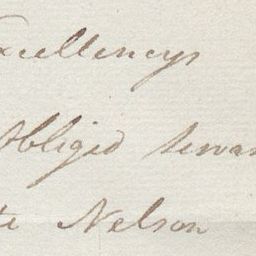 xcellencys
obliged servan
te Nelson